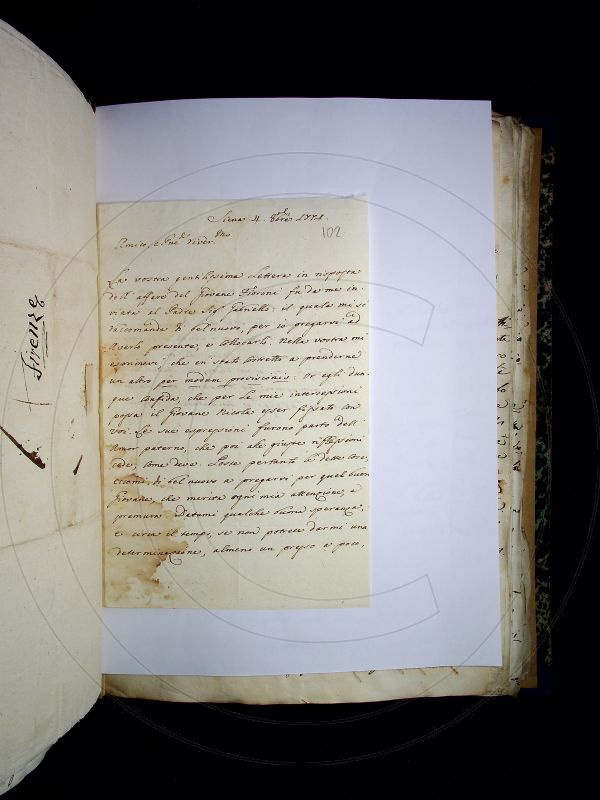 Siena 4. 8bre 1771.
102
Amico, e Pne River.mo
La vostra gentilissima Lettera in risposta
dell' affare del Giovane Fioroni fu da me in-
viata al Padre Sig.r il quale mi si
raccomanda di bel nuovo, per io pregarvi ad
averlo presente, e collocarlo. Nella vostra mi
esprimevi, che eri stato costretto a prenderne
un altro per modum provisionis. Or egli dun-
que confida, che per le mie intercessioni
possa il Giovane Nicola esser fissato con
voi. Le sue espressioni furono parto dell'
Amor paterno, che poi alle giuste riflessioni
cede, come deve. Poste pertanto le dette cose,
eccomi di bel nuovo a pregarvi per quel buon
Giovane, che merita ogni mia attenzione, e
premura. Datemi qualche buona speranza,
e circa il tempo, se non potrete darmi una
determinazione, almeno un presso a poco,
Firenze